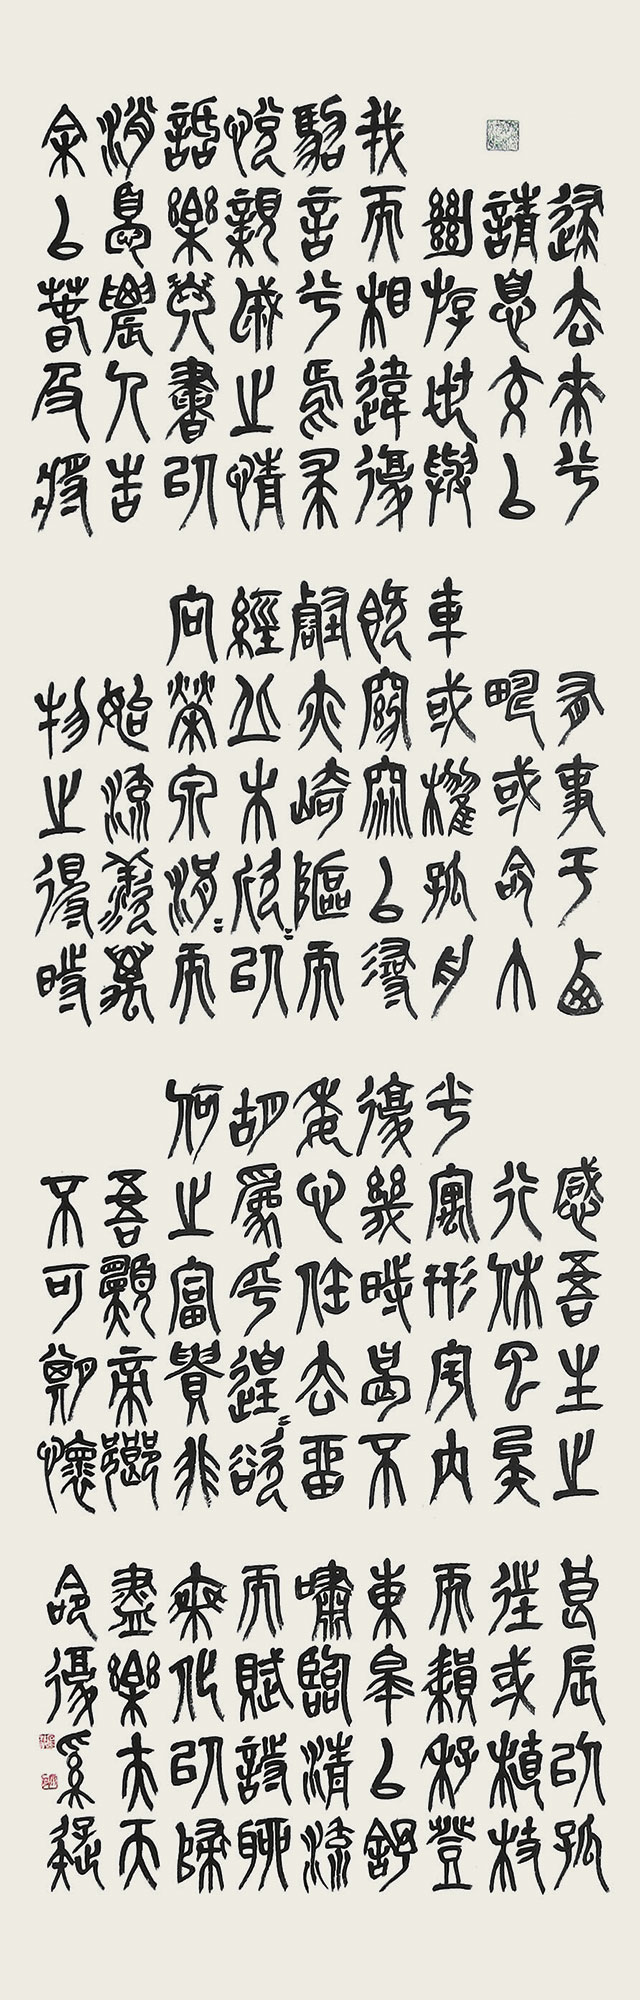 歸去來兮
請息交以
絕游世與
我而相違復
駕言兮焉求
悅親戚之情
話樂琴書以
消憂農人告
余以春及將
有事于西
疇或命巾
車或櫂孤舟
既窈窕以尋
壑亦崎嶇而
經丘木欣=以
向榮泉涓=而
始流羨萬
物之得時
感吾生之
行休已矣
乎寓形宇內
復幾時曷不
委心任去留
胡為乎遑=欲
何之富貴非
吾願帝鄉
不可期懷
良辰以孤
往或植杖
而耘耔登
東皋以舒
嘯臨清流
而賦詩聊
乘化以歸
盡樂夫天
命復奚疑